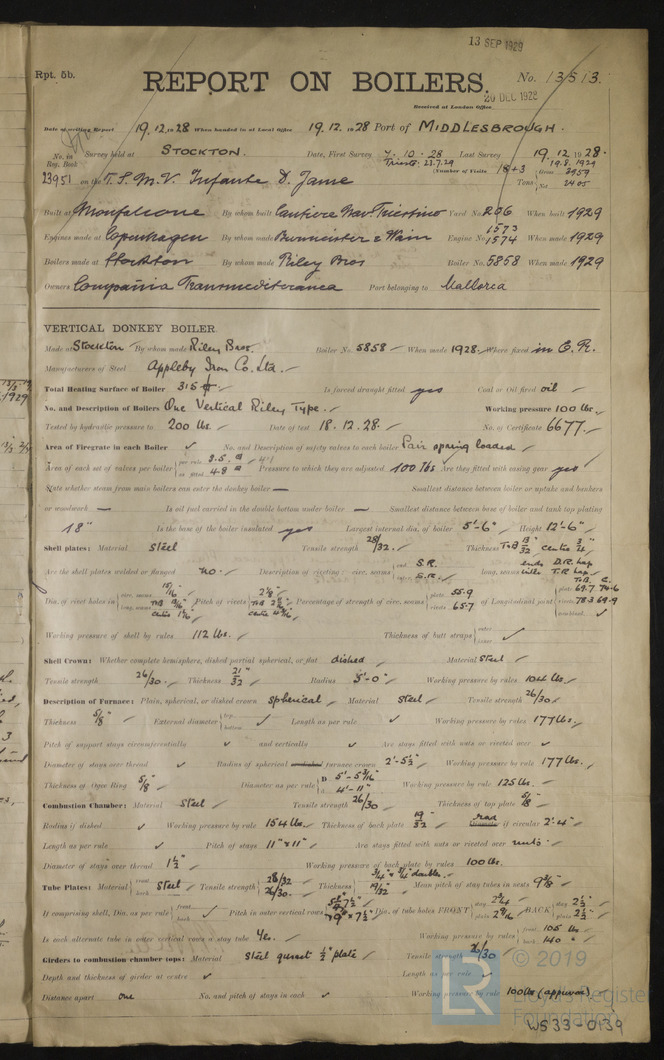 13 SEP 1929
Rpt. 5b.
REPORT ON BOILERS.
No. 13513.
20 DEC 1928
Received at London Office
Date of writing Report 19.12.1928 When handed in at Local Office 19.12.1928 Port of MIDDLESBROUGH.
No. in Reg. Book Survey held at STOCKTON. Date, First Survey 4-10-28 Last Survey 19.12.1928.
Trials 23.7.29 19.8.1929
23951 on the T.S.M.V. Infante D. Jame (Number of Visits 18+3 Tons Gross 2959 Net 2405
Built at Monfalcone By whom built Cantiere Nav. Triestino Yard No. 206 When built 1929
Engines made at Copenhagen By whom made Burmeister & Wain Engine No. 1573 1574 When made 1929
Boilers made at Stockton By whom made Riley Bros Boiler No. 5858 When made 1929
Owners Compañia Transmediterranea Port belonging to Mallorca
VERTICAL DONKEY BOILER.
Made at Stockton By whom made Riley Bros. Boiler No. 5858 When made 1928. Where fixed in E.R.
Manufacturers of Steel Appleby Iron Co. Ltd.
Total Heating Surface of Boiler 315 Is forced draught fitted yes Coal or Oil fired oil
No. and Description of Boilers One Vertical Riley Type. Working pressure 100 lbs.
Tested by hydraulic pressure to 200 lbs. Date of test 18.12.28. No. of Certificate 6677.
Area of Firegrate in each Boiler ✓ No. and Description of safety valves to each boiler Pair spring loaded
Area of each set of valves per boiler per rule 3.5 as fitted 4.8 Pressure to which they are adjusted 100 lbs Are they fitted with easing gear yes
State whether steam from main boilers can enter the donkey boiler — Smallest distance between boiler or uptake and bunkers
or woodwork — Is oil fuel carried in the double bottom under boiler — Smallest distance between base of boiler and tank top plating
18" Is the base of the boiler insulated yes Largest internal dia. of boiler 5'-6" Height 12'-6"
Shell plates: Material Steel Tensile strength 28/32. Thickness T&B 13/32 centre 3/4"
Are the shell plates welded or flanged no. Description of riveting: circ. seams end S.R. S.R. long. seams ends D.R. lap T.R. lap
Dia. of rivet holes in circ. seams long. seams Pitch of rivets Percentage of strength of circ. seams plate 55.9 rivets 65.7 of Longitudinal joint T.B. C. plate 69.7 74.6 rivets 78.3 69.9 combined ✓
Working pressure of shell by rules 112 lbs. Thickness of butt straps outer inner ✓
Shell Crown: Whether complete hemisphere, dished partial spherical, or flat dished Material Steel
Tensile strength 26/30. Thickness 21/32" Radius 5'-0" Working pressure by rules 104 lbs.
Description of Furnace: Plain, spherical, or dished crown spherical Material Steel Tensile strength 26/30
Thickness 5/8" External diameter top bottom ✓ Length as per rule ✓ Working pressure by rules 177 lbs.
Pitch of support stays circumferentially ✓ and vertically ✓ Are stays fitted with nuts or riveted over ✓
Diameter of stays over thread ✓ Radius of spherical furnace crown 2'-5½" Working pressure by rule 177 lbs.
Thickness of Ogee Ring 5/8" Diameter as per rule D 5'-5 3/16" d 4'-11" Working pressure by rule 125 lbs.
Combustion Chamber: Material Steel Tensile strength 26/30 Thickness of top plate 5/8"
Radius if dished ✓ Working pressure by rule 154 lbs. Thickness of back plate 19/32 rad if circular 2'-4"
Length as per rule ✓ Pitch of stays 11" x 11" Are stays fitted with nuts or riveted over nuts.
Diameter of stays over thread 1½" Working pressure of back plate by rules 100 lbs.
Tube Plates: Material front back Steel Tensile strength 28/32 26/30. Thickness 3/4" & 3/4" doubler. 19/32" Mean pitch of stay tubes in nests 9 3/8"
If comprising shell, Dia. as per rule front back ✓ Pitch in outer vertical rows Dia. of tube holes FRONT stay 2 3/4 plain 2 9/16 BACK stay 2½" plain 2½"
Is each alternate tube in outer vertical rows a stay tube Yes. Working pressure by rules front 105 lbs back 140 "
Girders to combustion chamber tops: Material Steel gusset ½" plate Tensile strength 26/30
Depth and thickness of girder at centre ✓ Length as per rule ✓
Distance apart one No. and pitch of stays in each ✓ Working pressure by rule 100 lbs (approved)
LR
© 2019
Lloyd's Register
Foundation
W533-0139